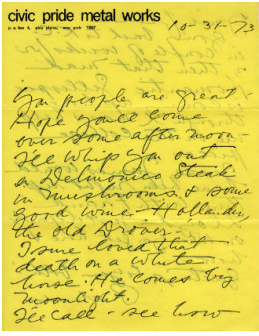 civic pride metal works
p. o. box 5, pine plains, new york 12567
10-31-73
You people are great
Hope you'll come
over some after moon-
Ile whip you out
a Delmonico Steak
in mushrooms & some
good wine - Holla. du,
the old Drover -
I sure loved that
death on a white
horse. He comes by
moonlight.
Ile call - see how